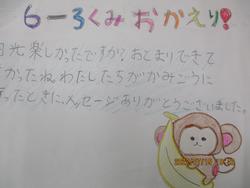 6-3くみ おかえり!
光楽しかったですか?おとまりできて
かったねわたしたちがかみごうに
ったときに、メッセージありがとうございました。